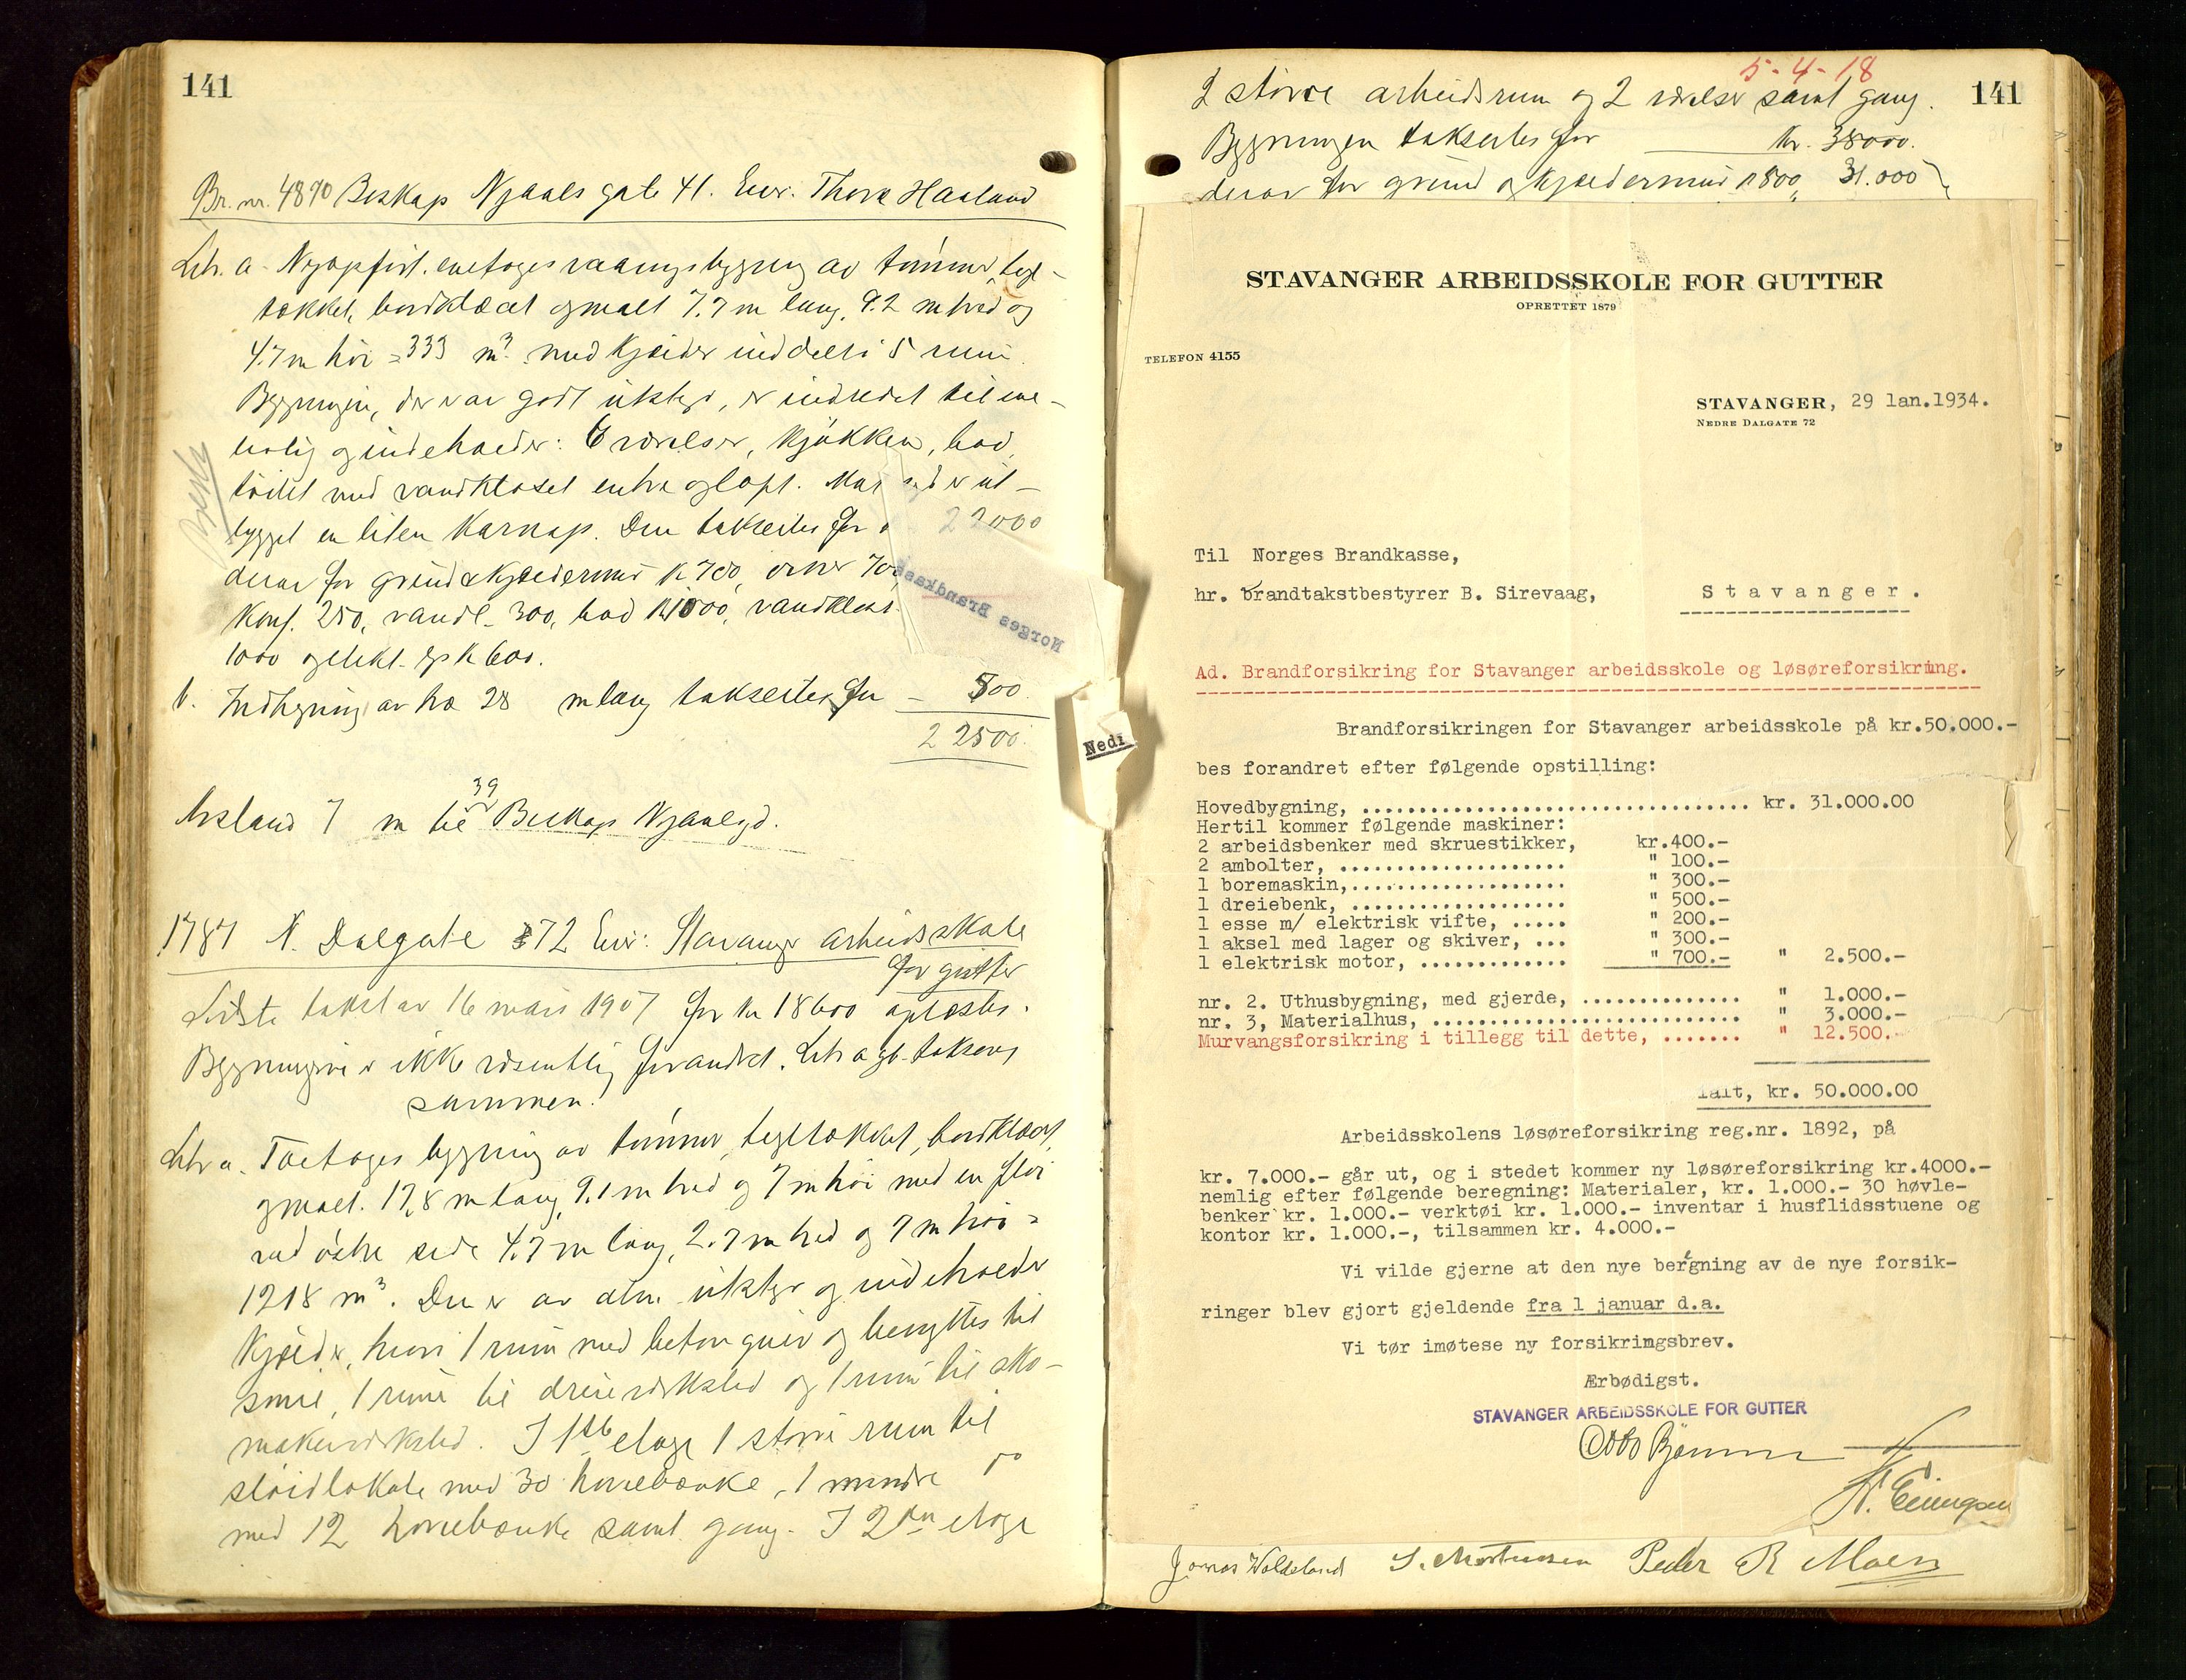 141
Br. nr. 4890 Biskop Njaals gate 41. Eier: Thora Haaland
Litr. a - Nyopført enetages vaaningsbygning av tømmer, tegl-
tækket, bordklædt og malt 7.7 m lang, 9.2 m bred og
4.7 m høi = 333 m³ med kjælder inddelt i 5 rum.
Bygningen, der er av godt utstyr, er indredet til ene-
bolig og indeholder: 6 værelser, kjøkken, bad,
toilet med vandkloset entre og loft. Mot syd er ut-
bygget en liten karnap. Den takseres for 22000
derav for grund & kjældermur kr 700, ovner 700
Komf. 250, vandl. 300, bad kr 1000, vandklos.
1000 og elekt. lys kr 600.
b. Indhegning av træ 28 m lang takseres for - 500
22500.
Avstand 7 m til 39 Biskop Njaalsgd.
1787 N. Dalgate 72 Eier: Stavanger arbeidsskole
for gutter
Sidste takst av 16 mars 1907 for kr 18600 oplæstes.
Bygningerne er ikke væsentlig forandret. Litr a og b takseres
sammen.
Litr a. Toetages bygning av tømmer, tegltækket, bordklædt,
og malt. 17,8 m lang, 9.1 m bred og 7 m høi med en fløi
ved østre side 4.7 m lang, 2.7 m bred og 7 m høi =
1218 m³. Den er av alm. utstyr og indeholder
Kjælder, hvori 1 rum med betongulv og benyttes til
smie, 1 rum til dreieverksted og 1 rum til sko-
makerverksted. I 1ste etage 1 større rum til
sløidlokale med 30 høvlebænke, 1 mindre do
med 12 høvlebænke samt gang. I 2den etage
Norges Brandkasse
Nedi
5-4-18
141
2 større arbeidsrum og 2 værelser samt gang.
Bygningen takseres for kr. 38000.
derav for grund og kjældermur 1800, 31.000
STAVANGER ARBEIDSSKOLE FOR GUTTER
OPRETTET 1879
TELEFON 4155
STAVANGER, 29 Jan.1934.
NEDRE DALGATE 72
Til Norges Brandkasse,
hr. brandtakstbestyrer B. Sirevaag, Stavanger.
Ad. Brandforsikring for Stavanger arbeidsskole og løsøreforsikring.
Brandforsikringen for Stavanger arbeidsskole på kr.50.000.-
bes forandret efter følgende opstilling:
Hovedbygning, .................................. kr. 31.000.00
Hertil kommer følgende maskiner:
2 arbeidsbenker med skruestikker, kr.400.-
2 ambolter, .................... " 100.-
1 boremaskin,................... " 300.-
1 dreiebenk, ................... " 500.-
1 esse m/ elektrisk vifte, ..... " 200.-
1 aksel med lager og skiver, ... " 300.-
1 elektrisk motor, ............. " 700.- " 2.500.-
nr. 2. Uthusbygning, med gjerde, .............. " 1.000.-
nr. 3, Materialhus, ........................... " 3.000.-
Murvangsforsikring i tillegg til dette, ....... " 12.500.-
Ialt, kr. 50.000.00
Arbeidsskolens løsøreforsikring reg.nr. 1892, på
kr. 7.000.- går ut, og i stedet kommer ny løsøreforsikring kr.4000.-
nemlig efter følgende beregning: Materialer, kr. 1.000.- 30 høvle-
benker kr. 1.000.- verktøi kr. 1.000.- inventar i husflidsstuene og
kontor kr. 1.000.-, tilsammen kr. 4.000.-
Vi vilde gjerne at den nye beregning av de nye forsik-
ringer blev gjort gjeldende fra 1 januar d.a.
Vi tør imøtese ny forsikringsbrev.
Ærbødigst.
STAVANGER ARBEIDSSKOLE FOR GUTTER
Jonas Waldeland S. Mortensen Peder R Moen